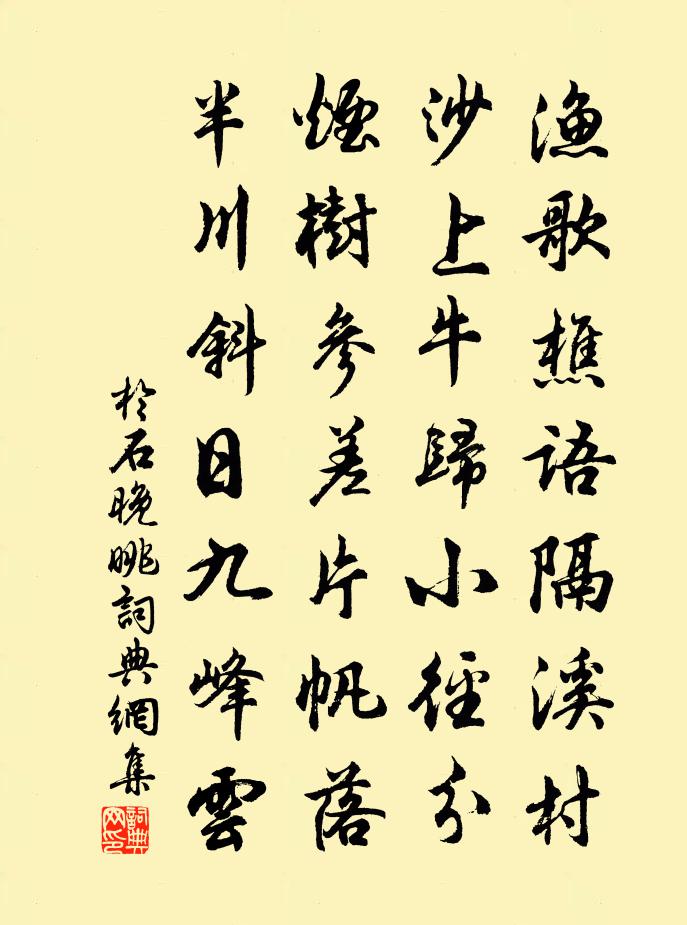 漁歌樵語隔溪村
沙上牛歸小徑分
煙樹參差片帆落
半川斜日九峰雲
於石晚眺詞典網集
詞典網印